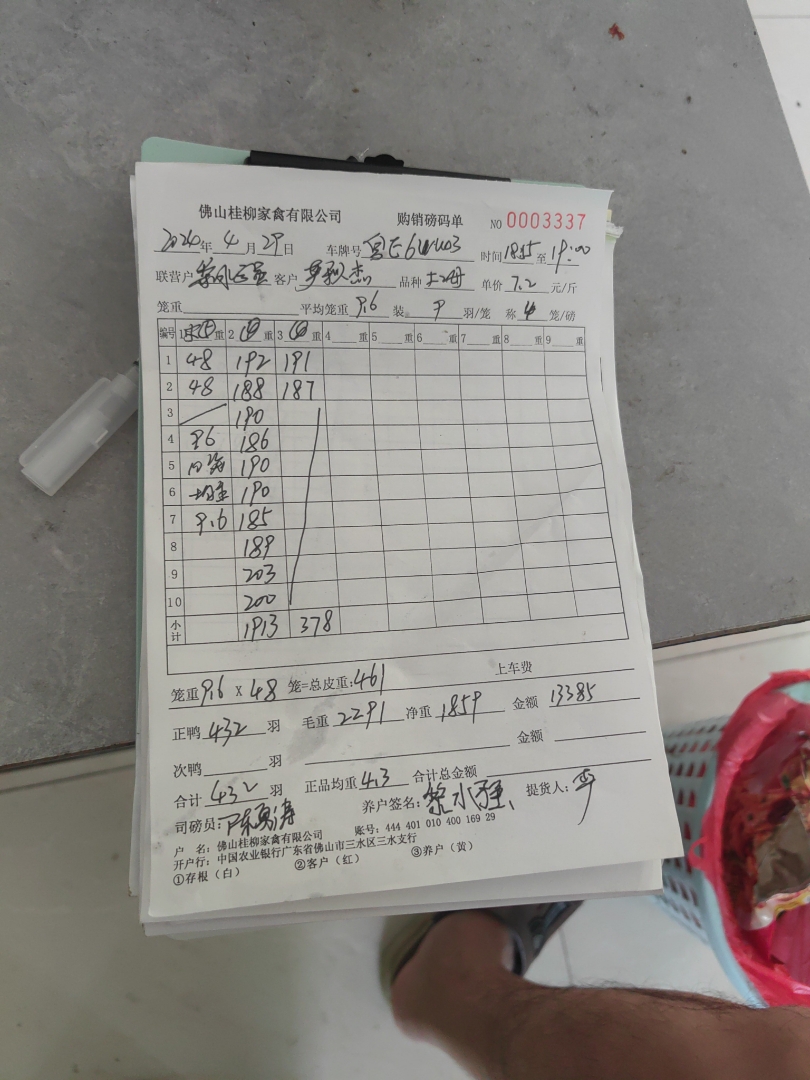 佛山桂柳家禽有限公司 购销磅码单 NO 0003337
2024年 4月 29日 车牌号 6W403 时间 1855 至 19:00
联营户 黎水强 客户 品种 单价 7.2 元/斤
笼重 平均笼重 9.6 装 9 羽/笼 称 4 笼/磅
编号 1 重 2 重 3 重 4 重 5 重 6 重 7 重 8 重 9 重
1 48 192 191
2 48 188 187
3 190
4 9.6 186
5 190
6 190
7 9.6 185
8 189
9 203
10 200
小计 1913 378
笼重 9.6 X 48 笼=总皮重: 461 上车费
正鸭 432 羽 毛重 2291 净重 1859 金额 13385
次鸭 羽 金额
合计 432 羽 正品均重 4.3 合计总金额
司磅员: 陈勇涛 养户签名: 黎水强 提货人: 李
户 名: 佛山桂柳家禽有限公司 账号: 444 401 010 400 169 29
开户行: 中国农业银行广东省佛山市三水区三水支行
①存根（白） ②客户（红） ③养户（黄）